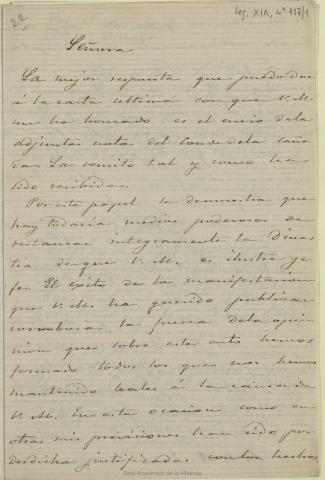 22,
Leg. XIA, nº 117/1
Señora
La mejor respuesta que puedo dar
á la carta última con que V. M.
me ha honrado es el envio dela
adjunta nota del Conde dela Cana
da. La remito tal y como ha
sido recibida.
Por este papel se demuestra que
hay todavia medios poderosos de
restaurar integramente la Dinas
tia de que V. M. es ilustre ge
fe. El éxito de la manifestacion
que V. M. ha querido publicar
corrobora la fuerza dela opi
nion que sobre este acto hemos
formado todos los que nos hemos
mantenido leales á la causa de
V. M. En esta ocasion como en
otras mis previsiones han sido por
desdicha justificadas con los hechos,
Real Academia de la Historia